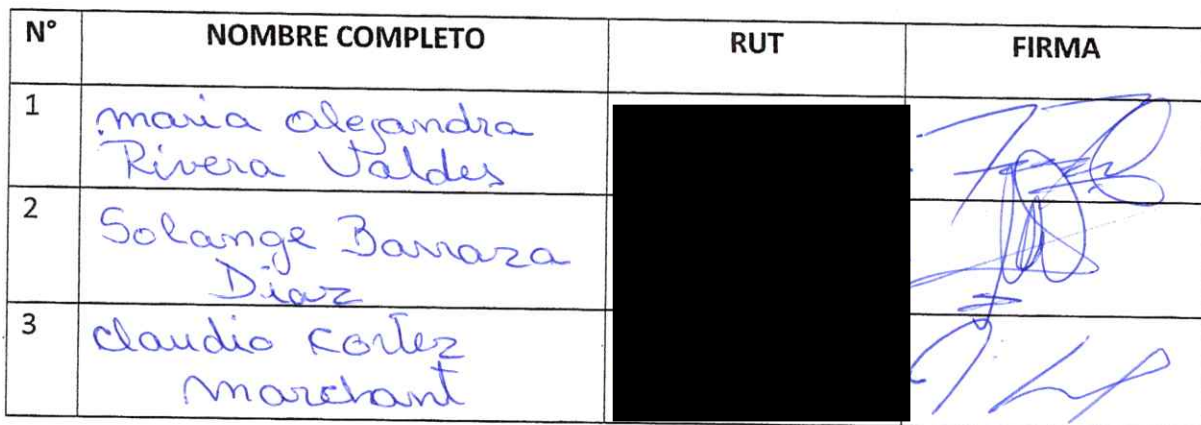 N° NOMBRE COMPLETO RUT FIRMA
1 maria alejandra
Rivera Valdes
2 Solange Barraza
Diaz
3 Claudio Cortez
marchant